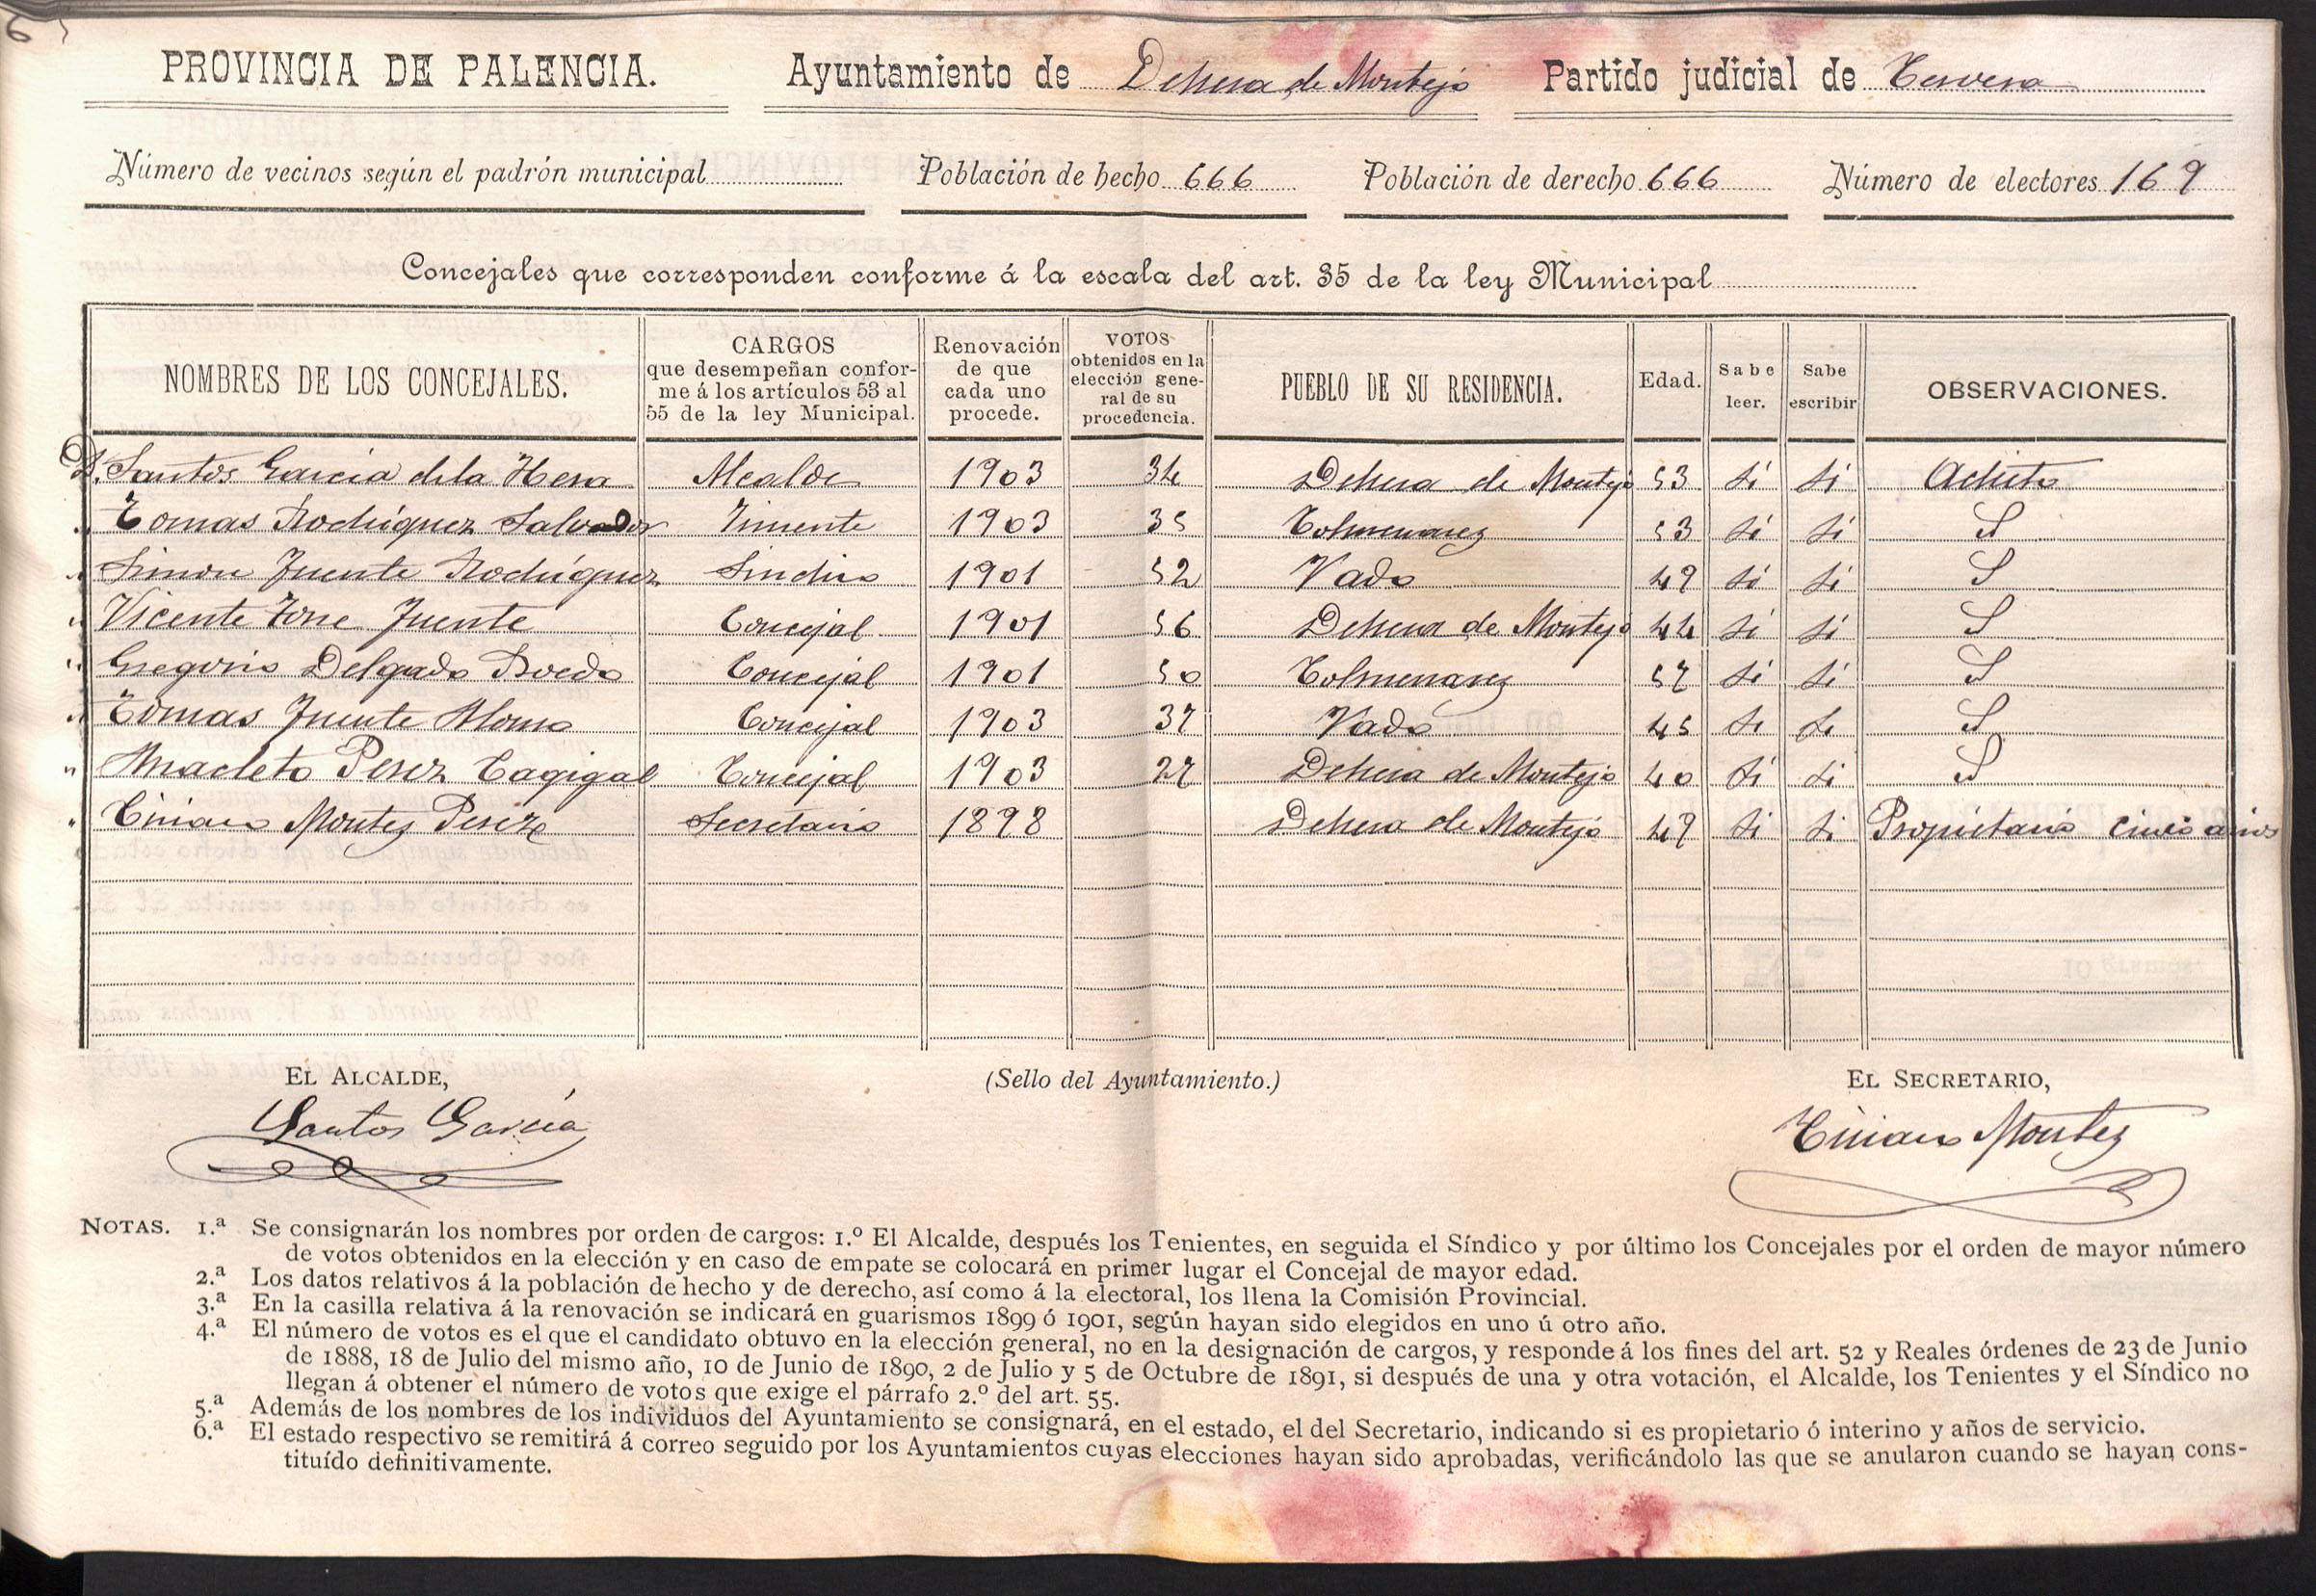 PROVINCIA DE PALENCIA. Ayuntamiento de Dehesa de Montejo Partido judicial de Cervera
Número de vecinos según el padrón municipal Población de hecho 666 Población de derecho 666 Número de electores 169
Concejales que corresponden conforme á la escala del art. 35 de la ley Municipal
NOMBRES DE LOS CONCEJALES.
CARGOS
que desempeñan confor-
me á los artículos 53 al
55 de la ley Municipal.
Renovación
de que
cada uno
procede.
VOTOS
obtenidos en la
elección gene-
ral de su
procedencia.
PUEBLO DE SU RESIDENCIA.
Edad.
Sabe
leer.
Sabe
escribir
OBSERVACIONES.
D. Santos Garcia de la Hera Alcalde 1903 34 Dehesa de Montejo 53 Si Si Adicto
" Tomas Rodriguez Salvador Tinente 1903 35 Colmenares 53 Si Si
" Simon Fuente Rodriguez Sindico 1901 52 Vado 49 Si Si
" Vicente Torre Fuente Concejal 1901 56 Dehesa de Montejo 44 Si Si
" Gregorio Delgado Roedo Concejal 1901 50 Colmenares 57 Si Si
" Tomas Fuente Alonso Concejal 1903 37 Vado 45 Si Si
" Anacleto Perez Cagigal Concejal 1903 27 Dehesa de Montejo 40 Si Si
" Ciriaco Montes Perez Secretario 1898 Dehesa de Montejo 49 Si Si Propietario cinco años
EL ALCALDE, (Sello del Ayuntamiento.) EL SECRETARIO,
Santos García Ciriaco Montes
NOTAS. 1.ª Se consignarán los nombres por orden de cargos: 1.º El Alcalde, después los Tenientes, en seguida el Síndico y por último los Concejales por el orden de mayor número
de votos obtenidos en la elección y en caso de empate se colocará en primer lugar el Concejal de mayor edad.
2.ª Los datos relativos á la población de hecho y de derecho, así como á la electoral, los llena la Comisión Provincial.
3.ª En la casilla relativa á la renovación se indicará en guarismos 1899 ó 1901, según hayan sido elegidos en uno ú otro año.
4.ª El número de votos es el que el candidato obtuvo en la elección general, no en la designación de cargos, y responde á los fines del art. 52 y Reales órdenes de 23 de Junio
de 1888, 18 de Julio del mismo año, 10 de Junio de 1890, 2 de Julio y 5 de Octubre de 1891, si después de una y otra votación, el Alcalde, los Tenientes y el Síndico no
llegan á obtener el número de votos que exige el párrafo 2.º del art. 55.
5.ª Además de los nombres de los individuos del Ayuntamiento se consignará, en el estado, el del Secretario, indicando si es propietario ó interino y años de servicio.
6.ª El estado respectivo se remitirá á correo seguido por los Ayuntamientos cuyas elecciones hayan sido aprobadas, verificándolo las que se anularon cuando se hayan cons-
tituído definitivamente.